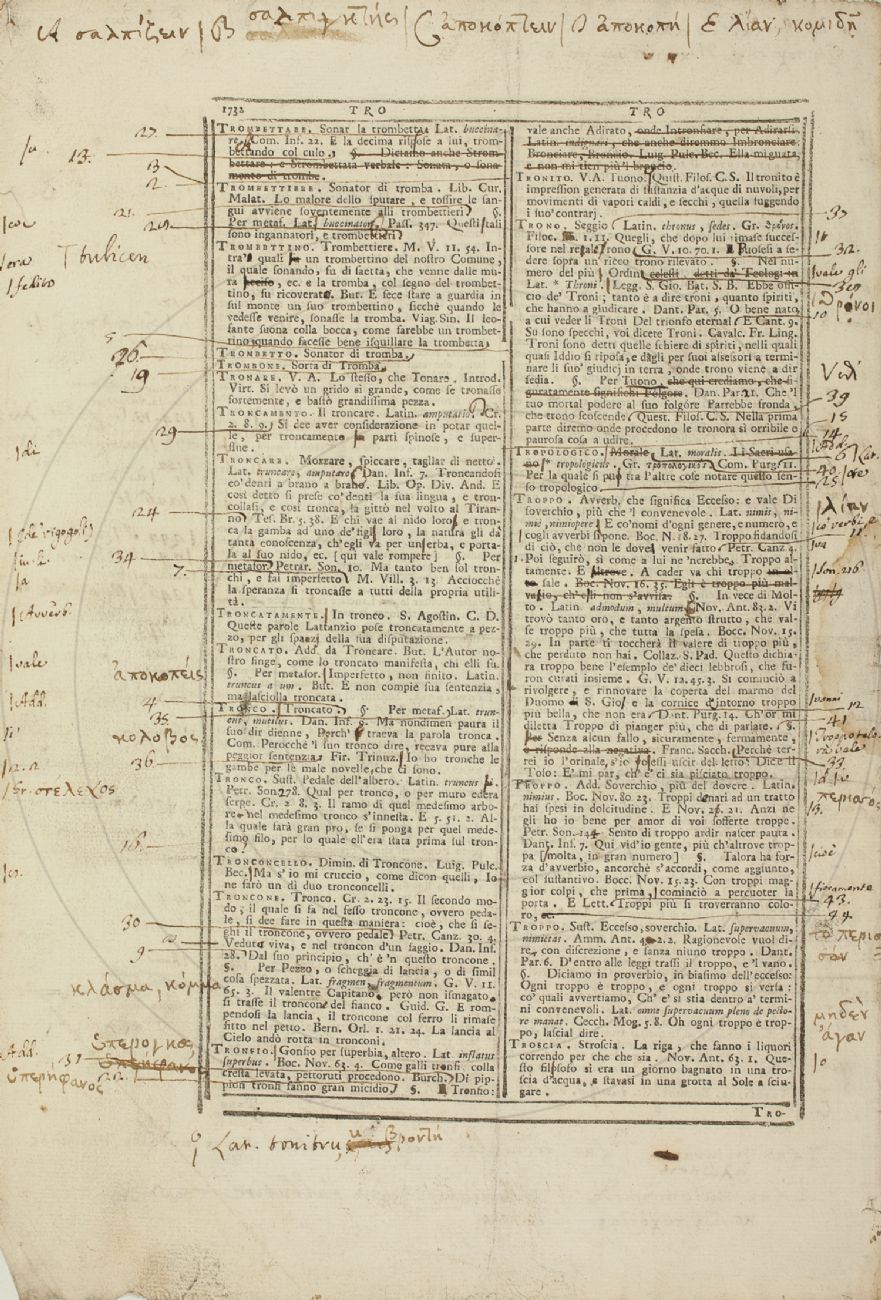 A σαλπίζειν | B σαλπιγκτής | C ἀποκόπτειν | D ἀποκοπή | E λίαν, κομιδῇ
1732 TRO TRO
TROMBETTARE. Sonar la trombetta. Lat. buccina-
re. Com. Inf. 22. E la decima rispose a lui, trom-
bettando col culo. §. Diciamo anche Strom-
bettare: e Strombettata verbale: Sonata, o sona-
mento di trombe.
TROMBETTIERE. Sonator di tromba. Lib. Cur.
Malat. Lo malore dello sputare, e tossire le san-
gui avviene soventemente alli trombettieri. §.
Per metaf. Lat. buccinator. Pass. 347. Questi tali
sono ingannatori, e trombettieri.
TROMBETTINO. Trombettiere. M. V. 11. 54. In-
tra' quali un trombettino del nostro Comune,
il quale sonando, fu di saetta, che venne dalle mu-
ra ucciso, ec. e la tromba, col segno del trombet-
tino, fu ricoverata. But. E fece stare a guardia in
sul monte un suo trombettino, sicchè quando le
vedesse venire, sonasse la tromba. Viag. Sin. Il leo-
fante suona colla bocca, come sarebbe un trombet-
tino quando facesse bene isquillare la trombetta.
TROMBETTO. Sonator di tromba.
TROMBONE. Sorta di Tromba.
TRONARE. V. A. Lo stesso, che Tonare. Introd.
Virt. Si levò un grido sì grande, come se tronasse
fortemente, e bastò grandissima pezza.
TRONCAMENTO. Il troncare. Latin. amputatio. Cr.
2. 8. 9. Si dee aver considerazione in potar quel-
le, per troncamento parti spinose, e super-
flue.
TRONCARE. Mozzare, spiccare, tagliar di netto.
Lat. truncare, amputare. Dan. Inf. 7. Troncandosi
co'denti a brano a brano. Lib. Op. Div. And. E
così detto si prese co'denti la sua lingua, e tron-
collasi, e così tronca, la gittò nel volto al Tiran-
no. Tes. Br. 5. 38. E chi vae al nido loro, e tron-
ca la gamba ad uno de'figli loro, la natura gli dà
tanta conoscenza, ch'egli va per un'erba, e porta-
la al suo nido, ec. [qui vale rompere] §. Per
metafor. Petrar. Son. 10. Ma tanto ben sol tron-
chi, e fai imperfetto. M. Vill. 3. 13. Acciocchè
la speranza si troncasse a tutti della propria utili-
tà.
TRONCATAMENTE. In tronco. S. Agostin. C. D.
Queste parole Lattanzio pose troncatamente a pez-
zo, per gli spazzj della sua disputazione.
TRONCATO. Add. da Troncare. But. L'Autor no-
stro finge, come lo troncato manifesta, chi elli fu.
§. Per metafor. Imperfetto, non finito. Latin.
truncus a um. But. E non compie sua sentenzia,
ma lasciolla troncata.
TRONCO. Troncato. §. Per metaf. Lat. trun-
cus, mutilus. Dan. Inf. 9. Ma nondimen paura il
suo dir dienne, Perch' traeva la parola tronca.
Com. Perocchè 'l suo tronco dire, recava pure alla
peggior sentenzia. Fir. Trinuz. Io ho tronche le
gambe per le male novelle, che ci sono.
TRONCO. Sust. Pedale dell'albero. Latin. truncus
Petr. Son. 278. Qual per tronco, o per muro edera
serpe. Cr. 2. 8. 3. Il ramo di quel medesimo arbo-
re nel medesimo tronco s'innesta. E 5. 51. 2. Al-
la quale sarà gran pro, se si ponga per quel mede-
simo filo, per lo quale ell'era stata prima sul tron-
co.
TRONCONCELLO. Dimin. di Troncone. Luig. Pulc.
Bec. Ma s'io mi cruccio, come dicon quelli, Io
ne farò un dì duo tronconcelli.
TRONCONE. Tronco. Cr. 2. 23. 15. Il secondo mo-
do, il quale si fa nel fesso troncone, ovvero peda-
le, si dee fare in questa maniera: cioè, che si se-
ghi il troncone, ovvero pedale. Petr. Canz. 30. 4.
Veduta viva, e nel troncon d'un faggio. Dan. Inf.
28. Dal suo principio, ch' è 'n questo troncone.
§. Per Pezzo, o scheggia di lancia, o di simil
cosa spezzata. Lat. fragmen, fragmentum. G. V. 11.
65. 3. Il valentre Capitano, però non ismagato,
si trasse il troncone del fianco. Guid. G. E rom-
pendosi la lancia, il troncone col ferro li rimase
fitto nel petto. Bern. Orl. 1. 21. 24. La lancia al
Cielo andò rotta in tronconi.
TRONFIO. Gonfio per superbia, altero. Lat. inflatus
superbus. Boc. Nov. 63. 4. Come galli tronfi colla
cresta levata, pettoruti procedono. Burch. Di pip-
pion tronfi fanno gran micidio. §. Tronfio:
vale anche Adirato, onde Intronfiare, per Adirarsi.
Latin. indignari, che anche diremmo Imbronciare.
Bronciare, Broncio. Luig. Pulc. Bec. Ella mi guata,
e non mi tien più 'l broncio.
TRONITO. V.A. Tuono. Quist. Filos. C. S. Il tronito è
impression generata di sustanzia d'acque di nuvoli, per
movimenti di vapori caldi, e secchi, quella fuggendo
i suo'contrarj.
TRONO. Seggio. Latin. thronus, sedes. Gr. θρόνος.
Filoc. 1. 11. Quegli, che dopo lui rimase succes-
sore nel reale trono. G. V. 10. 70. 1. Puosesi a se-
dere sopra un ricco trono rilevato. §. Nel nu-
mero del più Ordini celesti detti da' Teologi in
Lat. * Throni. Legg. S. Gio. Bat. S. B. Ebbe offi-
cio de' Troni; tanto è a dire troni, quanto spiriti,
che hanno a giudicare. Dant. Par. 5. O bene nato
a cui veder li Troni Del trionfo eternal. E Cant. 9.
Su sono specchi, voi dicete Troni. Cavalc. Fr. Ling.
Troni sono detti quelle schiere di spiriti, nelli quali
quasi Iddio si riposa, e dagli per suoi assessori a termi-
nare li suo' giudicj in terra, onde trono viene a dir
sedia. §. Per Tuono, che qui crediamo, che fi-
guratamente significhi Folgore. Dan. Par. 21. Che 'l
tuo mortal podere al suo folgore Parrebbe fronda,
che trono scoscende. Quest. Filos. C.S. Nella prima
parte diremo onde procedono le tronora sì orribile o
paurosa cosa a udire.
TROPOLOGICO. Morale. Lat. moralis. Li Sacri usa-
no * tropologicus. Gr. τροπολογικός. Com. Purg. 11.
Per la quale si può tra l'altre cose notare questo sen-
so tropologico.
TROPPO. Avverb. che significa Eccesso: e vale Di
soverchio, più che 'l convenevole. Lat. nimis, ni-
mie, nimiopere. E co'nomi d'ogni genere, e numero, e
cogli avverbi si pone. Boc. N. 18. 27. Troppo fidandosi
di ciò, che non le dovea venir fatto. Petr. Canz. 4.
1. Poi seguirò, sì come a lui ne 'ncrebbe, Troppo al-
tamente. E altrove. A cader va chi troppo in al-
to sale. Boc. Nov. 16. 35. Egli è troppo più mal-
vagio, ch'elli non s'avvisa. §. In vece di Mol-
to. Latin. admodum, multum. Nov. Ant. 83. 2. Vi
trovò tanto oro, e tanto argento strutto, che val-
se troppo più, che tutta la spesa. Bocc. Nov. 15.
29. In parte ti toccherà il valere di troppo più,
che perduto non hai. Collaz. S. Pad. Questo dichia-
ra troppo bene l'esemplo de' dieci lebbrosi, che fu-
ron curati insieme. G. V. 12. 45. 3. Si cominciò a
rivolgere, e rinnovare la coperta del marmo del
Duomo di S. Gio. e la cornice d'intorno troppo
più bella, che non era. Dant. Purg. 14. Ch'or mi
diletta Troppo di pianger più, che di parlare. §.
Per Senza alcun fallo, sicuramente, fermamente,
e risponde alla negativa. Franc. Sacch. Perchè ter-
rei io l'orinale, s'io potessi uscir del letto. Dice il
Toso: E' mi par, ch' e' ci sia pisciato troppo.
TROPPO. Add. Soverchio, più del dovere. Latin.
nimius. Boc. Nov. 80. 23. Troppi denari ad un tratto
hai spesi in dolcitudine. E Nov. 27. 21. Anzi ne
gli ho io bene per amor di voi sofferte troppe.
Petr. Son. 144. Sento di troppo ardir nascer paura.
Dant. Inf. 7. Qui vid'io gente, più ch'altrove trop-
pa [molta, in gran numero] §. Talora ha for-
za d'avverbio, ancorchè s'accordi, come aggiunto,
col sustantivo. Bocc. Nov. 15. 23. Con troppi mag-
gior colpi, che prima, cominciò a percuoter la
porta. E Lett. Troppi più si troverranno colo-
ro, ec.
TROPPO. Sust. Eccesso, soverchio. Lat. supervacuum,
nimietas. Amm. Ant. 4. 2. 2. Ragionevole vuol di-
re, con discrezione, e sanza niuno troppo. Dant.
Par. 6. D'entro alle leggi trassi il troppo, e 'l vano.
§. Diciamo in proverbio, in biasimo dell'eccesso:
Ogni troppo è troppo, e ogni troppo si versa:
co' quali avvertiamo, Ch' e' si stia dentro a' termi-
ni convenevoli. Lat. omne supervacuum pleno de pecto-
re manat. Cecch. Mog. 5. 8. Oh ogni troppo è trop-
po, lascia! dire.
TROSCIA. Stroscia. La riga, che fanno i liquori
correndo per che che sia. Nov. Ant. 63. 1. Que-
sto filosofo si era un giorno bagnato in una tro-
scia d'acqua, e stavasi in una grotta al Sole a sciu-
gare.
TRO-
27.
13.
13
2.
21.
29.
tubicen
26.
19
29
24
34
7.
Avverb.
vale
ἀποκοπείς
Add.
4
35
κολοβός
36
Gr. στέλεχος
18.
30
9
κλάσμα, κόμμα
Add.
ὑπέρογκος
31
ὑπερήφανος
22.
33
32.
vale gli
Θρόνοι
10
39
15
14
6
40
25
λίαν
11
Son. 216.
12
41
33
περισσός
cioè
fieramente
43.
44
τὸ περισ
σον
μηδὲν
ἄγαν
9 Lat. tonitru, βροντή